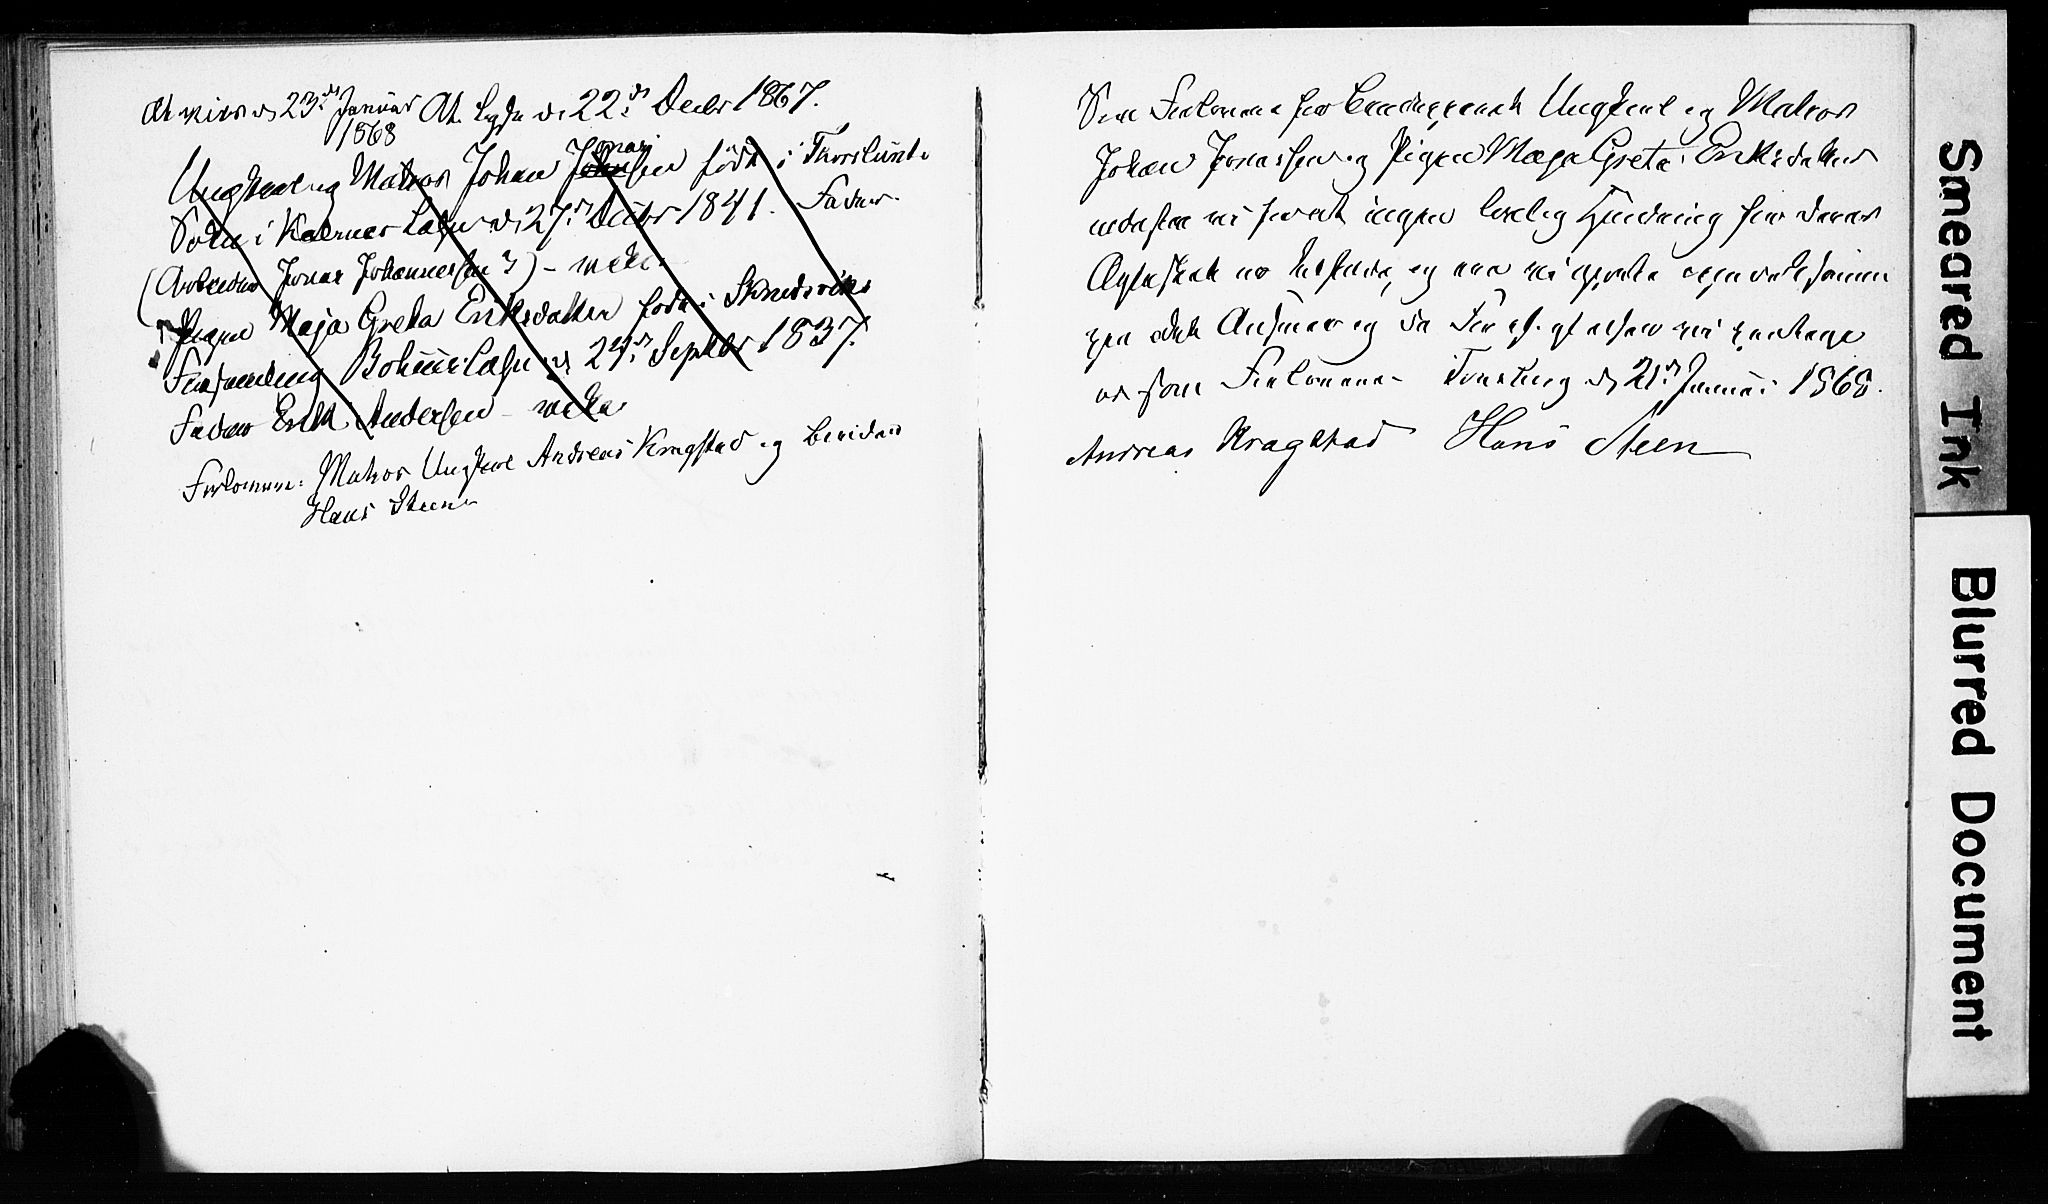 At vies d. 23de Januar At lyse d. 22de Decbr 1867.
1868
Ungkarl og Matros Johan Jonassen født i Thorslunda
Sogn i Kalmar Læhn d. 27de Decbr 1841. Fader
(Arbeider Jonas Johannessen) -
Pigen Maja Greta Eriksdatter født i Skredsviks
Forsamling Bohuus Læhn d. 24de Septbr 1837.
Fader Erik Andersen -
Forlovere: Matros Ungkarl Andreas Kragstad og
Hans Steen
Som Forlovere for Brudeparret Ungkarl og Matros
Johan Jonassen og Pigen Maja Greta Eriksdatter
vi herved ingen lovlig Hindring for deres
Ægteskab at, og
Ansvar og
os som Forlovere. Tønsberg d. 21de Januar 1868.
Andreas Kragstad Hans Steen
Smeared Ink
Blurred Document